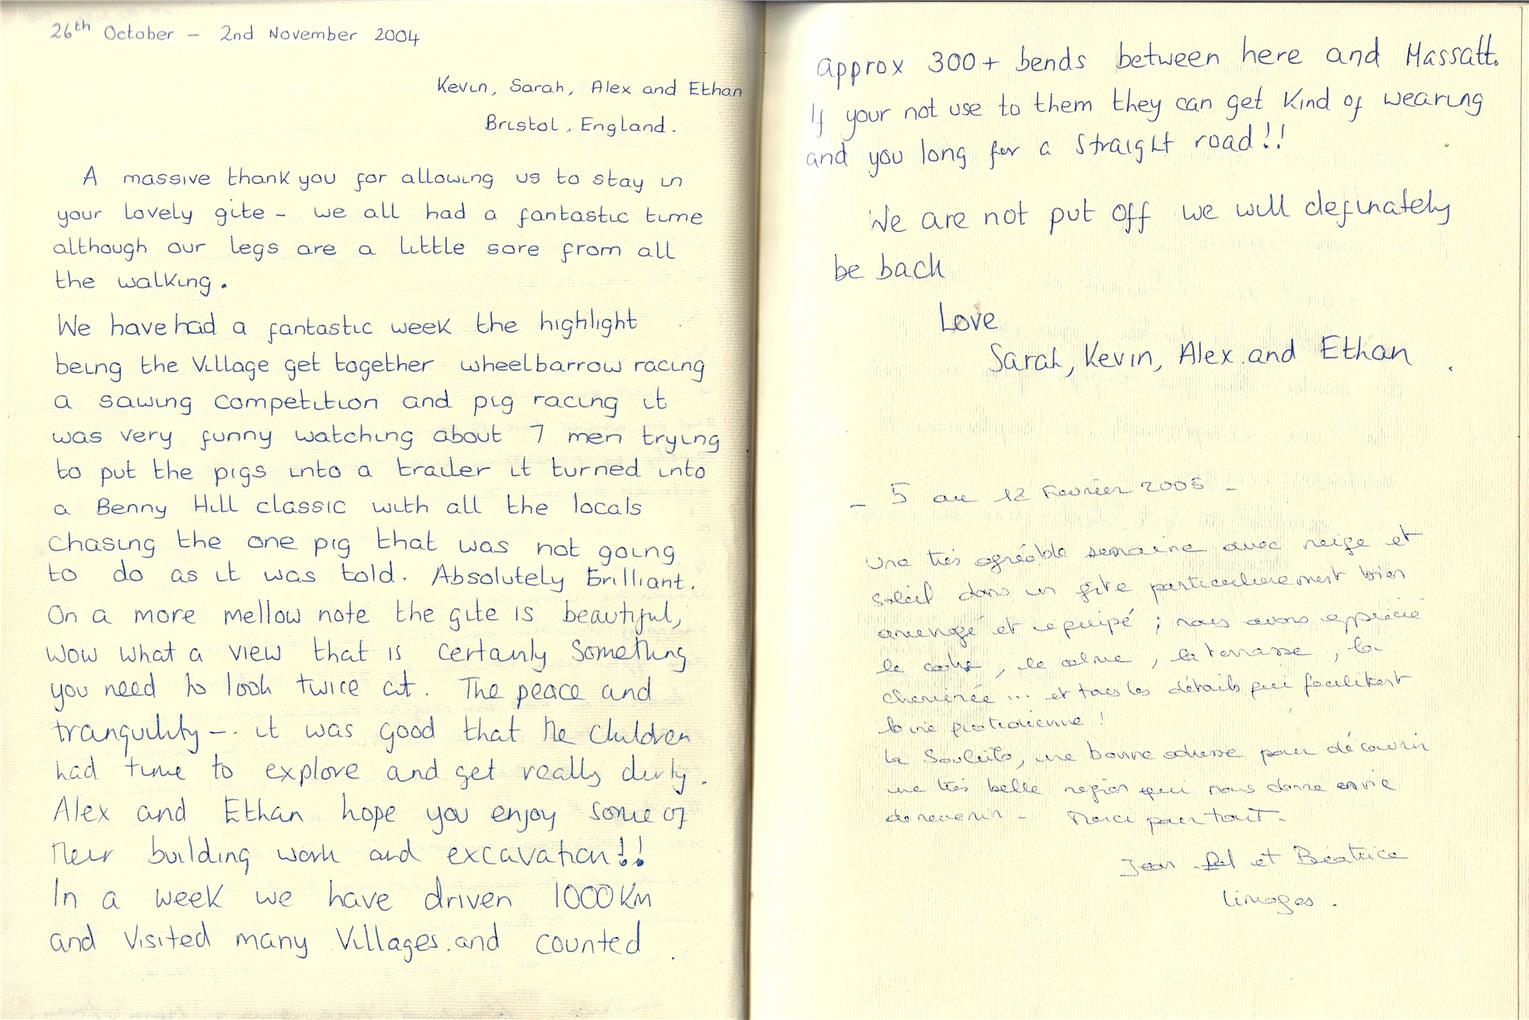 26th October - 2nd November 2004
Kevin, Sarah, Alex and Ethan
Bristol, England.
A massive thank you for allowing us to stay in
your lovely gite - we all had a fantastic time
although our legs are a little sore from all
the walking.
We have had a fantastic week the highlight
being the Village get together wheelbarrow racing
a sawing competition and pig racing it
was very funny watching about 7 men trying
to put the pigs into a trailer it turned into
a Benny Hill classic with all the locals
chasing the one pig that was not going
to do as it was told. Absolutely Brilliant.
On a more mellow note the gite is beautiful,
wow what a view that is certainly something
you need to look twice at. The peace and
tranquility - it was good that the children
had time to explore and get really dirty.
Alex and Ethan hope you enjoy some of
their building work and excavation!!
In a week we have driven 1000Km
and visited many Villages and counted
approx 300+ bends between here and Massatt.
If your not use to them they can get kind of wearing
and you long for a straight road!!
We are not put off we will definately
be back
Love
Sarah, Kevin, Alex and Ethan
- 5 au 12 Février 2005 -
Une très agréable semaine avec neige et
soleil dans un gîte particulièrement bien
aménagé et équipé ; nous avons apprécié
le cadre, le calme, la terrasse, la
cheminée... et tous les détails qui facilitent
la vie quotidienne !
La Souleito, une bonne adresse pour découvrir
une très belle région qui nous donne envie
de revenir - Merci pour tout.
Jean et Béatrice
Limoges.